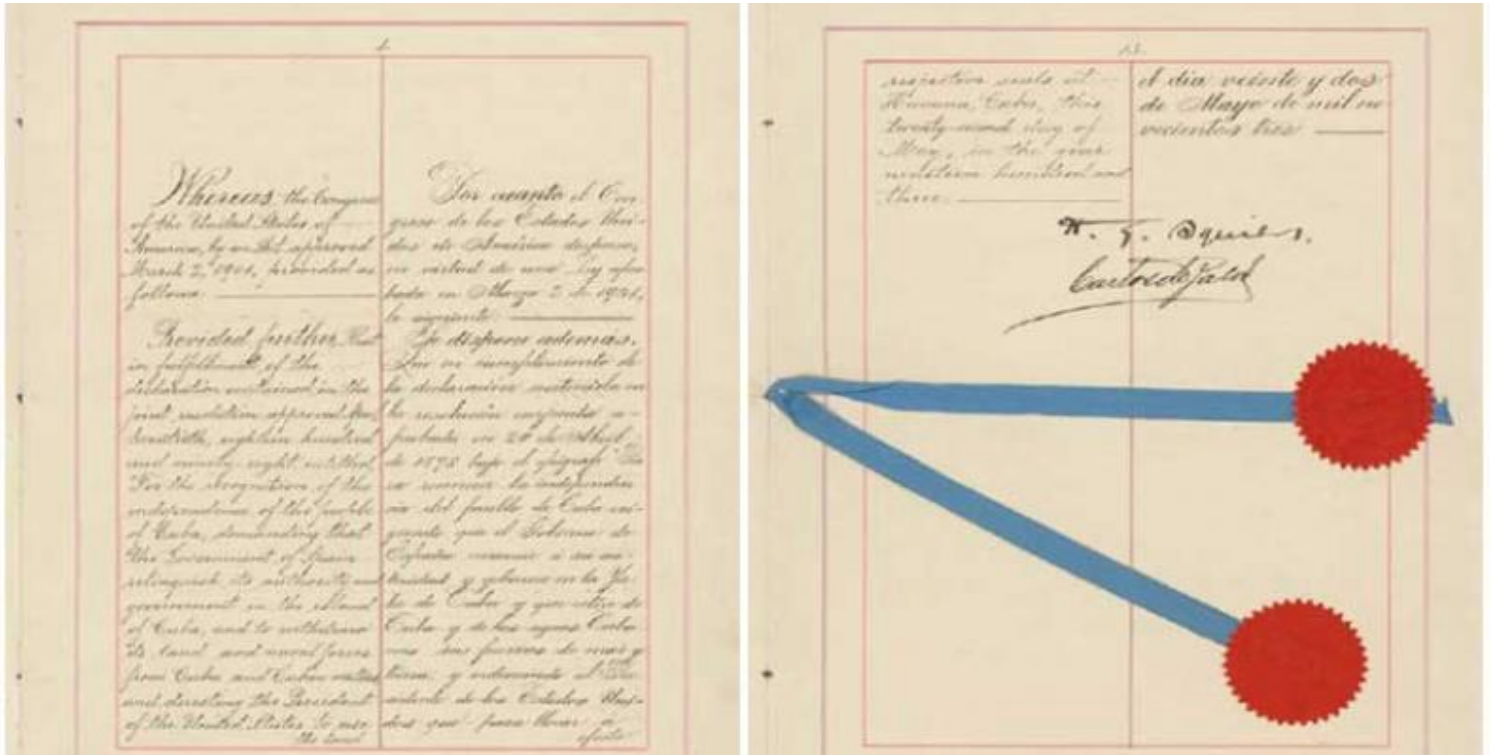 1.
Whereas the Congress
of the United States of
America, by an Act approved
March 2, 1901, provided as
follows:
Provided further That
in fulfillment of the
declaration contained in the
joint resolution approved April
twentieth, eighteen hundred
and ninety-eight, entitled
"For the recognition of the
independence of the people
of Cuba, demanding that
the Government of Spain
relinquish its authority and
government in the Island
of Cuba, and to withdraw
its land and naval forces
from Cuba and Cuban waters
and directing the President
of the United States to use
the land
Por cuanto el Con-
greso de los Estados Uni-
dos de América dispuso,
en virtud de una Ley apro-
bada en Marzo 2 de 1901,
lo siguiente:
Se dispone además,
Que en cumplimiento de
la declaración contenida en
la resolución conjunta a-
probada en 20 de Abril
de 1898 bajo el epígrafe
se reconoce la independen
cia del pueblo de Cuba exi-
giendo que el Gobierno de
España renuncie á su au-
toridad y gobierno en la Is-
la de Cuba y que retire de
Cuba y de las aguas Cuba-
nas sus fuerzas de mar y
tierra, y ordenando al Presi-
dente de los Estados Uni-
dos que para llevar á
efecto
respective seals at
Havana, Cuba, this
twenty-second day of
May, in the year
nineteen hundred and
three.
el dia veinte y dos
de Mayo de mil no
vecientos tres
H. G. Squiers.
Carlos de Zaldo